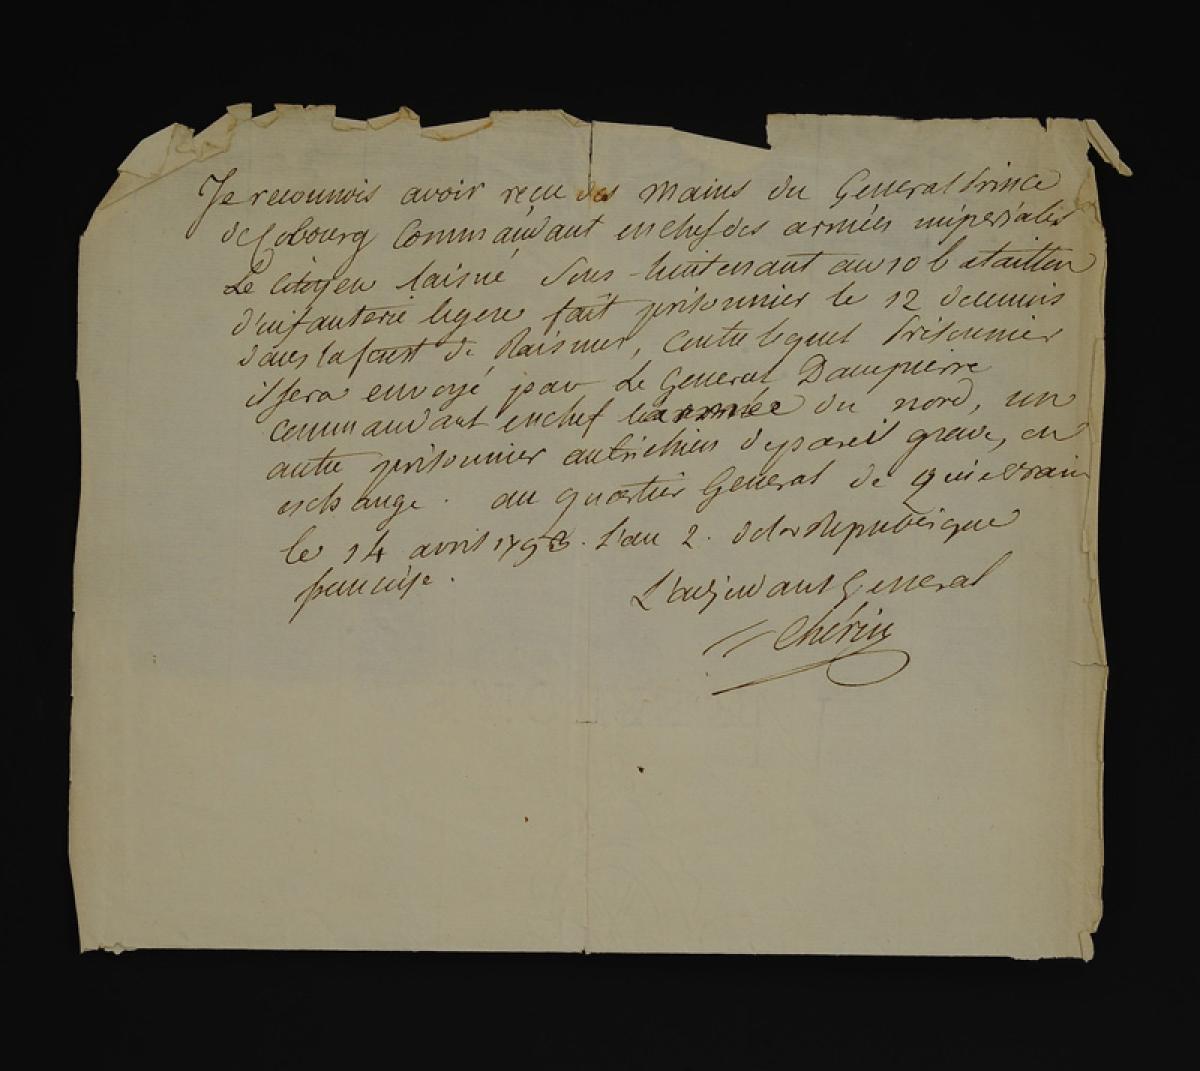 Je reconnois avoir reçu des mains du General Prince
de Cobourg Commandant en chef des armées imperiales
Le Citoyen laisné Sous-lieutenant au 10 bataillon
d'infanterie legere fait prisonnier le 12 de ce mois
dans la forest de Raismes, contre lequel Prisonnier
il sera envoyé par Le General Dampierre
commandant en chef l'armée du nord, un
autre prisonnier autrichien de pareil grade, en
eschange. au quartier General de Quievrain
le 14 avril 1793. L'an 2. de la Republique
francaise.
L'adjudant General
Chérin